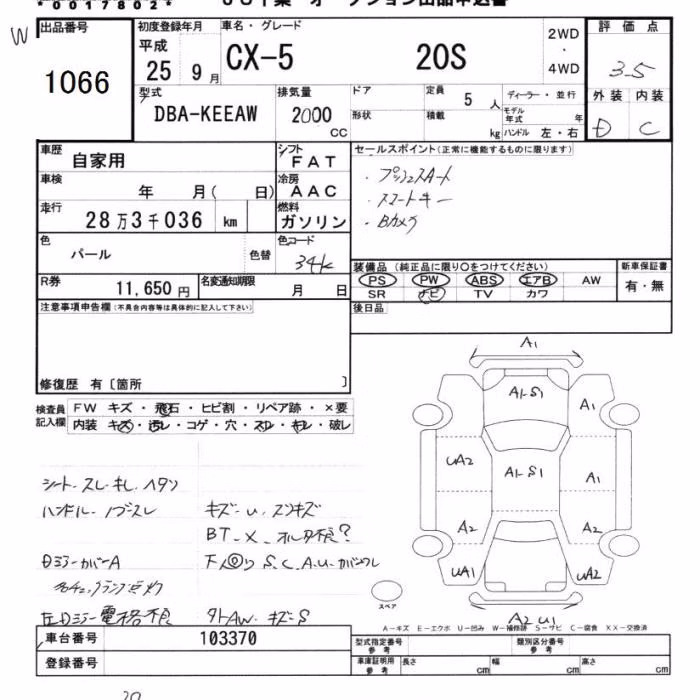 *0017802*
W
出品番号 1066
初度登録年月 平成 25 9月
車名・グレード CX-5 20S
2WD ・ 4WD
評価点 3.5
外装 内装
D C
型式 DBA-KEEAW
排気量 2000 CC
ドア 形状
定員 5人
積載 kg
ディーラー・並行
モデル年式 年
ハンドル 左・右
車歴 自家用
シフト FAT
車検 年 月( 日)
冷房 AAC
走行 28万3千036 km
燃料 ガソリン
色 パール 色替
色コード 34k
R券 11,650円
名変通知期限 月 日
セールスポイント(正常に機能するものに限ります)
・プッシュスタート
・スマートキー
・Bカメラ
装備品(純正品に限り○をつけてください)
PS PW ABS エアB AW
SR ナビ TV カワ
新車保証書 有・無
後日品
注意事項申告欄(不具合内容等は具体的に記入して下さい)
修復歴 有〔箇所 〕
検査員記入欄
FW キズ・飛石・ヒビ割・リペア跡・×要
内装 キズ・汚レ・コゲ・穴・スレ・キレ・破レ
シート.スレ.キレ.ヘタリ
ハンドル・ノブスレ
キズ・u.スリキズ
BT-X.オルタ不良?
DミラーカバーA
下回り S.C.A.u.カバーワレ
左Dミラー電格不良
外AW.キズS
A1
A1-S1
A1
uA2
A1-S1
A1
A2
A2
uA1
uA2
A2 u1
スペア
A-キズ E-エクボ U-凹み W-補修跡 S-サビ C-腐食 XX-交換済
車台番号 103370
登録番号
型式指定番号 参考
類別区分番号 参考
車庫証明用 参考
長さ cm 幅 cm 高さ cm
20